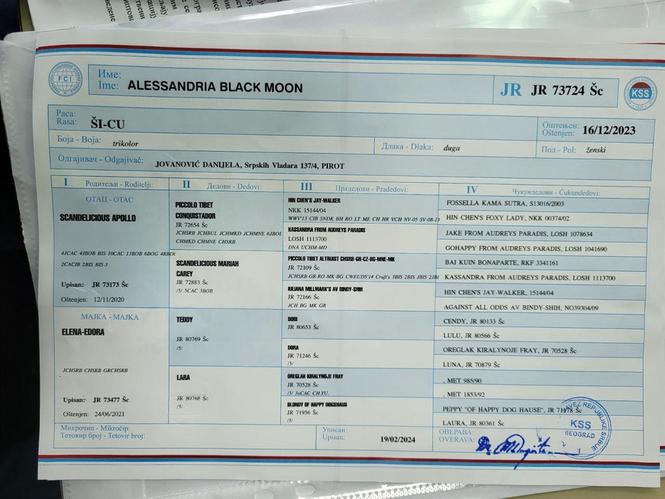 FCI
Име:
Ime: ALESSANDRIA BLACK MOON
JR JR 73724 Šc
KSS
Раса:
Rasa: ŠI-CU
Оштењен:
Oštenjen: 16/12/2023
Боја - Boja: trikolor
Длака - Dlaka: duga
Пол - Pol: ženski
Одгајивач - Odgajivač: JOVANOVIĆ DANIJELA, Srpskih Vladara 137/4, PIROT
I Родитељи - Roditelji
II Дедови - Dedovi:
III Прадедови - Pradedovi:
IV Чукундедови - Čukundedovi:
ОТАЦ - OTAC
SCANDELICIOUS APOLLO
2CACIB 2BIS BIS-3
Upisan: JR 73173 Šc
Oštenjen: 12/11/2020
МАЈКА - MAJKA
ELENA-EDORA
JCHSRB CHSRB GRCHSRB
Upisan: JR 73477 Šc
Oštenjen: 24/06/2021
PICCOLO TIBET
CONQUISTADOR
JR 72654 Šc
CHMKD CHMNE CHSRB
SCANDELICIOUS MARIAH
CAREY
JR 72883 Šc
/5/ 5CAC 3BOB
TEDDY
JR 80769 Šc
/5/
LARA
JR 80768 Šc
/5/
HIN CHEN'S JAY-WALKER
NKK 15144/04
KASSANDRA FROM AUDREYS PARADIS
LOSH 1113700
DNA UCHBM-MD
PICCOLO TIBET ALTRUIST CHSRB-GR-CZ-BG-MNE-MK
JR 72109 Šc
JULIANA MILLMARK'S AV BINDY-SHIH
JR 72166 Šc
JCH BG MK GR
DODI
JR 80653 Šc
DORA
JR 71246 Šc
/5/
OREGLAK KIRALYNOJE FRAY
JR 70528 Šc
BLONDY OF HAPPY DOGHAUS
JR 71956 Šc
/5/
FOSSELLA KAMA SUTRA, S13016/2003
HIN CHEN'S FOXY LADY, NKK 00374/02
JAKE FROM AUDREYS PARADIS, LOSH 1078634
GOHAPPY FROM AUDREYS PARADIS, LOSH 1041690
BAI KUIN BONAPARTE, RKF 3341161
KASSANDRA FROM AUDREYS PARADIS, LOSH 1113700
HIN CHEN'S JAY-WALKER, 15144/04
AGAINST ALL ODDS AV BINDY-SHIH, NO39304/09
CENDY, JR 80133 Šc
LULU, JR 80566 Šc
OREGLAK KIRALYNOJE FRAY, JR 70528 Šc
LUNA, JR 70879 Šc
, MET 985/90
, MET 1853/92
PEPPY "OF HAPPY DOG HAUSE", JR 71178 Šc
LAURA, JR 80361 Šc
Микрочип - Mikročip:
Тетовир број - Tetovir broj:
Уписан
Upisan: 19/02/2024
ОВЕРАВА:
OVERAVA:
KSS
BEOGRAD